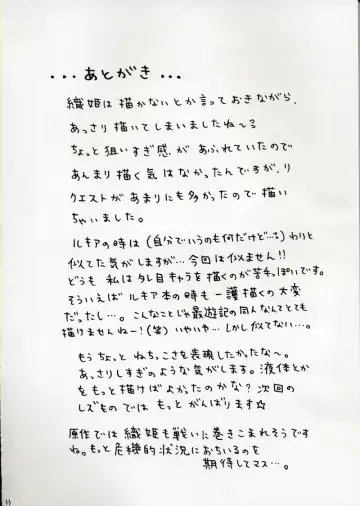 ・・・あとがき・・・
織姫は描かないとか言っておきながら、
あっさり描いてしまいましたね〜る
ちょっと狙いすぎ感があふれていたので
あんまり描く気はなかったんですが、リ
クエストがあまりにも多かったので描い
ちゃいました。
ルキアの時は(自分でいうのも何だけど…)わりと
似てた気がしますが…今回は似ません!!
どうも私はタレ目キャラを描くのが苦手っぽいです。
そういえばルキア本の時も一護描くの大変
だったし…。こんなことじゃ最遊記の同人なんてとても
描けませんねー!(笑)いやいや…しかし似てない…。
もうちょっとねちっこさを表現したかったな〜。
あっさりしすぎのような気がします。液体とか
をもっと描けばよかったのかな?次回の
レズものではもっとがんばります☆
原作では織姫も戦いに巻きこまれそうです
ね。もっと危機的状況におちいるのを
期待してマス…。
33